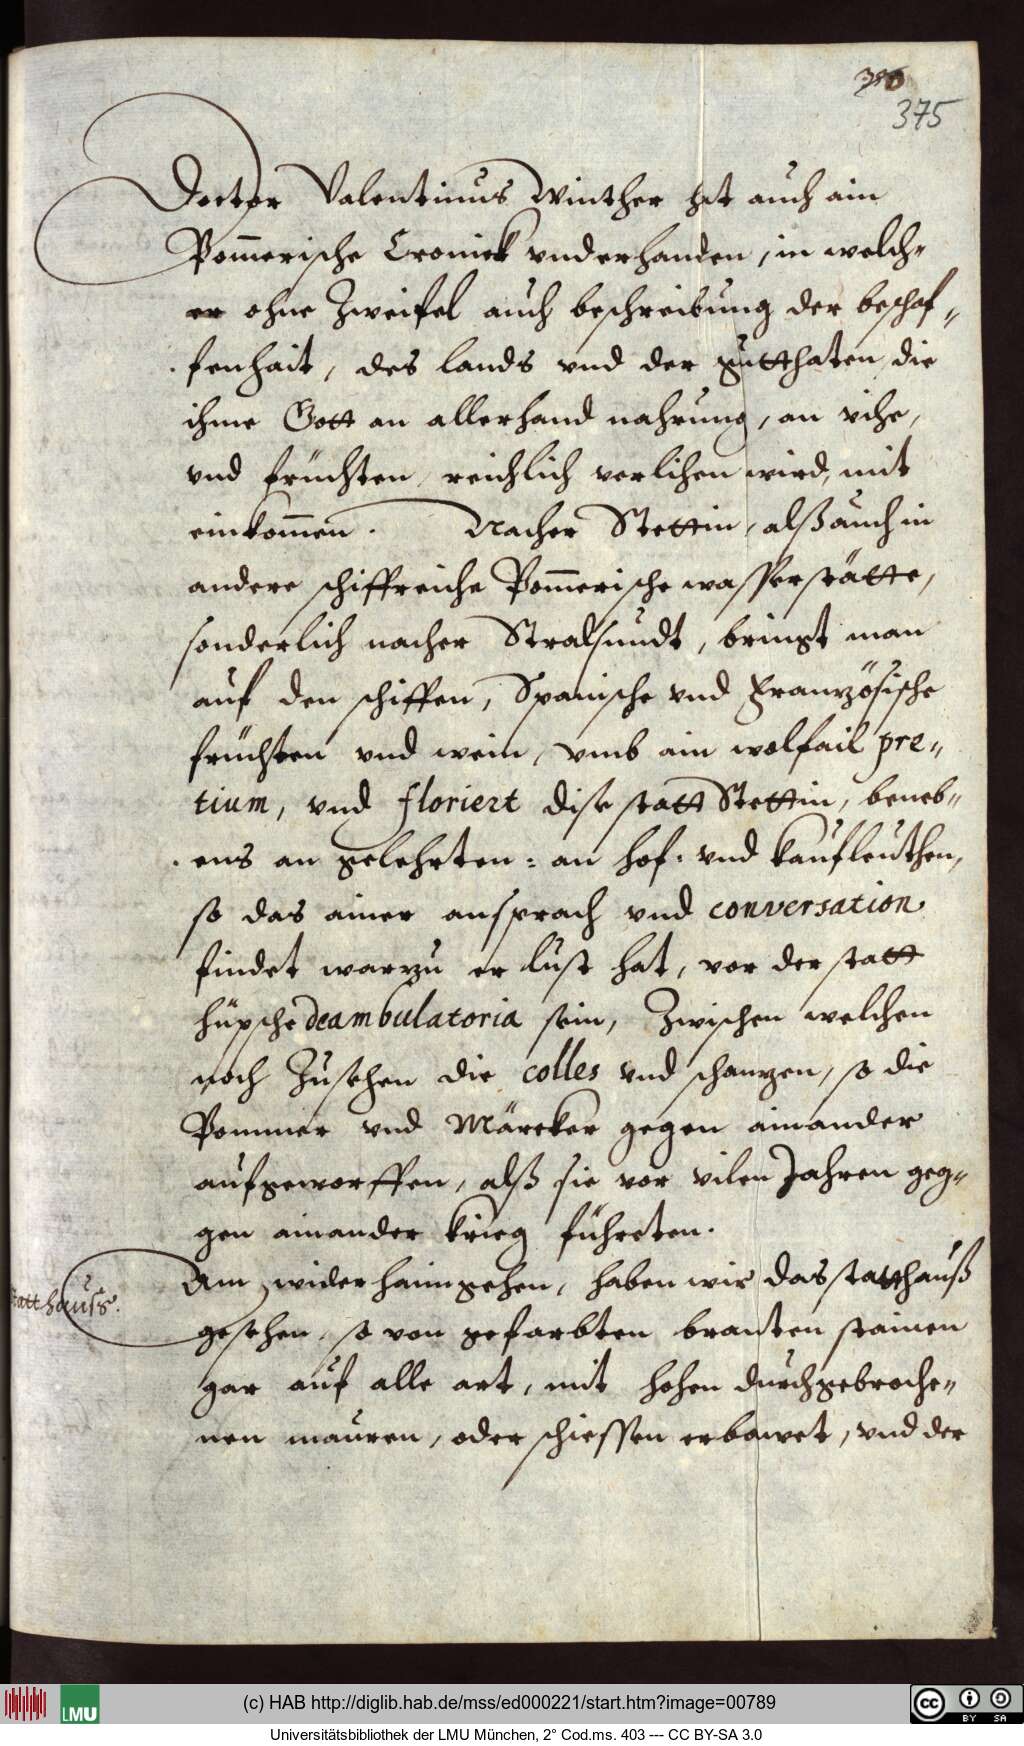 375
Doctor Valentinus Winther hat auch ain
Pom̄erische Cronick vnderhanden, in welch-
er ohne Zweifel auch beschreibung der beschaf-
fenhait, des lands vnd der gutthaten, die
ihme Gott an allerhand nahrung, an vihe,
vnd früchten, reichlich verlihen wird, mit
einkom̄en. Nacher Stettin, alß auch in
andere schiffreiche Pom̄erische wasserstätte,
sonderlich nacher Stralsundt, bringt man
auf den schiffen, Spanische vnd Französische
früchten vnd wein, vmb ain wolfail pre-
tium, vnd floriert dise statt Stettin, beneb-
ens an gelehrten: an hof: vnd kaufleuthen,
so das ainer ansprach vnd conversation
findet warzu er lust hat, vor der statt
hüpsche deambulatoria sein, Zwischen welchen
noch Zusehen die colles vnd schanzen, so die
Pommer vnd Märcker gegen ainander
aufgeworffen, alß sie vor vilen Jahren geg-
gen ainander krieg führeten.
Am widerhaimgehen, haben wir das statthauß
gesehen, so von gefarbten branten stainen
gar auf alle art, mit hohen durchgebroche-
nen mauren, oder schiessen erbawet, vnd der
statthauß.
LMU
(c) HAB http://diglib.hab.de/mss/ed000221/start.htm?image=00789
cc BY SA
Universitätsbibliothek der LMU München, 2° Cod.ms. 403 --- CC BY-SA 3.0